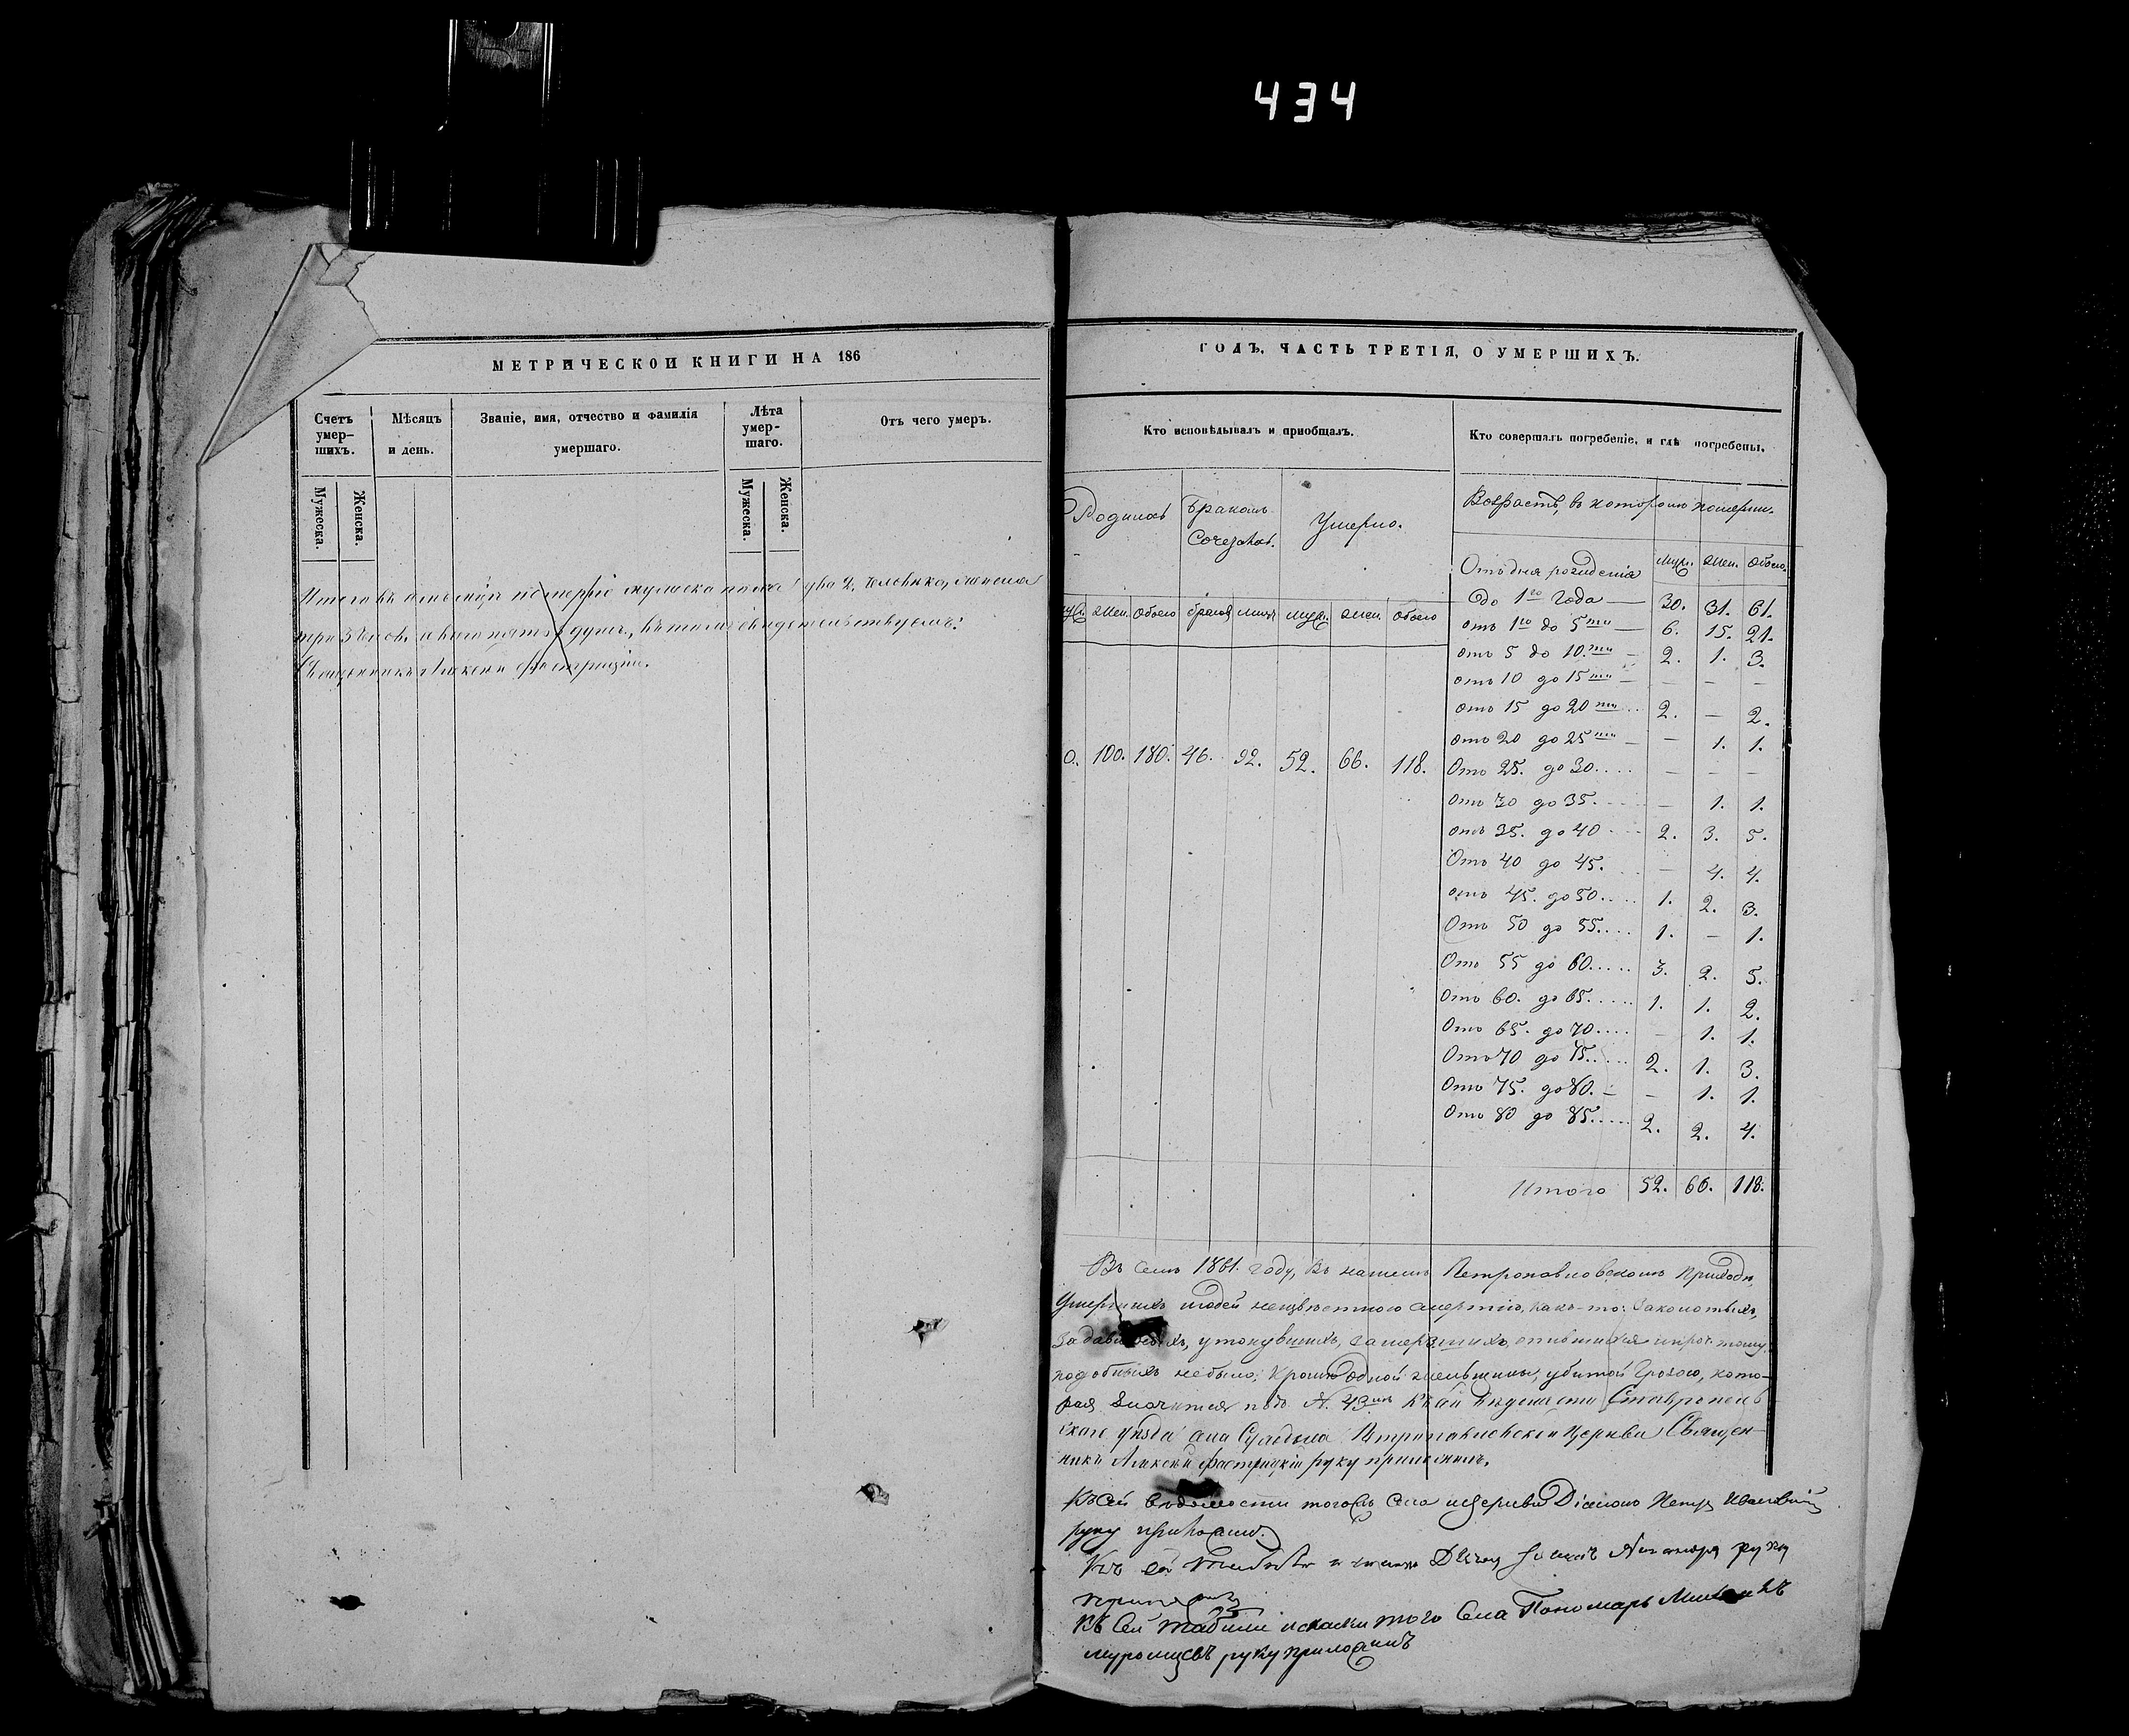 434
МЕТРИЧЕСКОЙ КНИГИ НА 186
Счетъ умер-шихъ.
Мѣсяцъ и день.
Званіе, имя, отчество и фамилія умершаго.
Лѣта умер-шаго.
Отъ чего умеръ.
Мужеска.
Женска.
Мужеска.
Женска.
Итого въ померло мужеска пола два 2, человѣка, женска
три 3 челов. а всего пять 5 душъ, въ томъ свидетельствуемъ:
Священникъ Алексей
ГОДЪ, ЧАСТЬ ТРЕТІЯ, О УМЕРШИХЪ.
Кто исповѣдывалъ и пріобщалъ.
Кто совершалъ погребеніе, и гдѣ погребены.
Родилось
Бракомъ Сочеталось.
Умерло.
Возрастъ, въ которомъ померли.
муж. жен. Обоего.
Отъ дня рожденія
до 1го года — 30. 31. 61.
жен. Обоего браковъ лицъ муж. жен. обоего
отъ 1го до 5ти — 6. 15. 21.
отъ 5 до 10.ти — 2. 1. 3.
отъ 10 до 15ти — — — —
отъ 15 до 20ти ... 2. — 2.
отъ 20 до 25ти — — 1. 1.
0. 100. 180. 46. 92. 52. 66. 118.
Отъ 25. до 30.... — — —
Отъ 30 до 35.... — 1. 1.
отъ 35. до 40 .... 2. 3. 5.
Отъ 40 до 45. ... — 4. 4.
отъ 45. до 50.... 1. 2. 3.
Отъ 50 до 55.... 1. — 1.
Отъ 55 до 60..... 3. 2. 5.
Отъ 60. до 65..... 1. 1. 2.
Отъ 65. до 70.... — 1. 1.
Отъ 70 до 75..... 2. 1. 3.
Отъ 75. до 80. — — 1. 1.
Отъ 80 до 85..... 2. 2. 4.
Итого 52. 66. 118.
Въ семъ 1861. году, въ нашемъ Петропавловскомъ приходѣ,
Умершихъ людей неизвѣстною смертію, какъ-то: Заколотыхъ,
Задавленыхъ, утонувшихъ, замерзшихъ, опившихся и проч. тому
подобныхъ небыло; Кромѣ Одной женьщины, убитой Грозою, кото-
рая Значится подъ №. 43мъ Къ сей Вѣдомости Ставрополь
скаго уѣзда села Суходола Петропавловской Церкви Священ-
никъ Алексей руку приложилъ.
Къ сей вѣдомости тогожъ села и церкви Діаконъ Петръ
руку приложилъ.
Къ сей руку
приложилъ
Къ Сей табели и сказки того Села Пономарь
Муромцевъ руку приложилъ